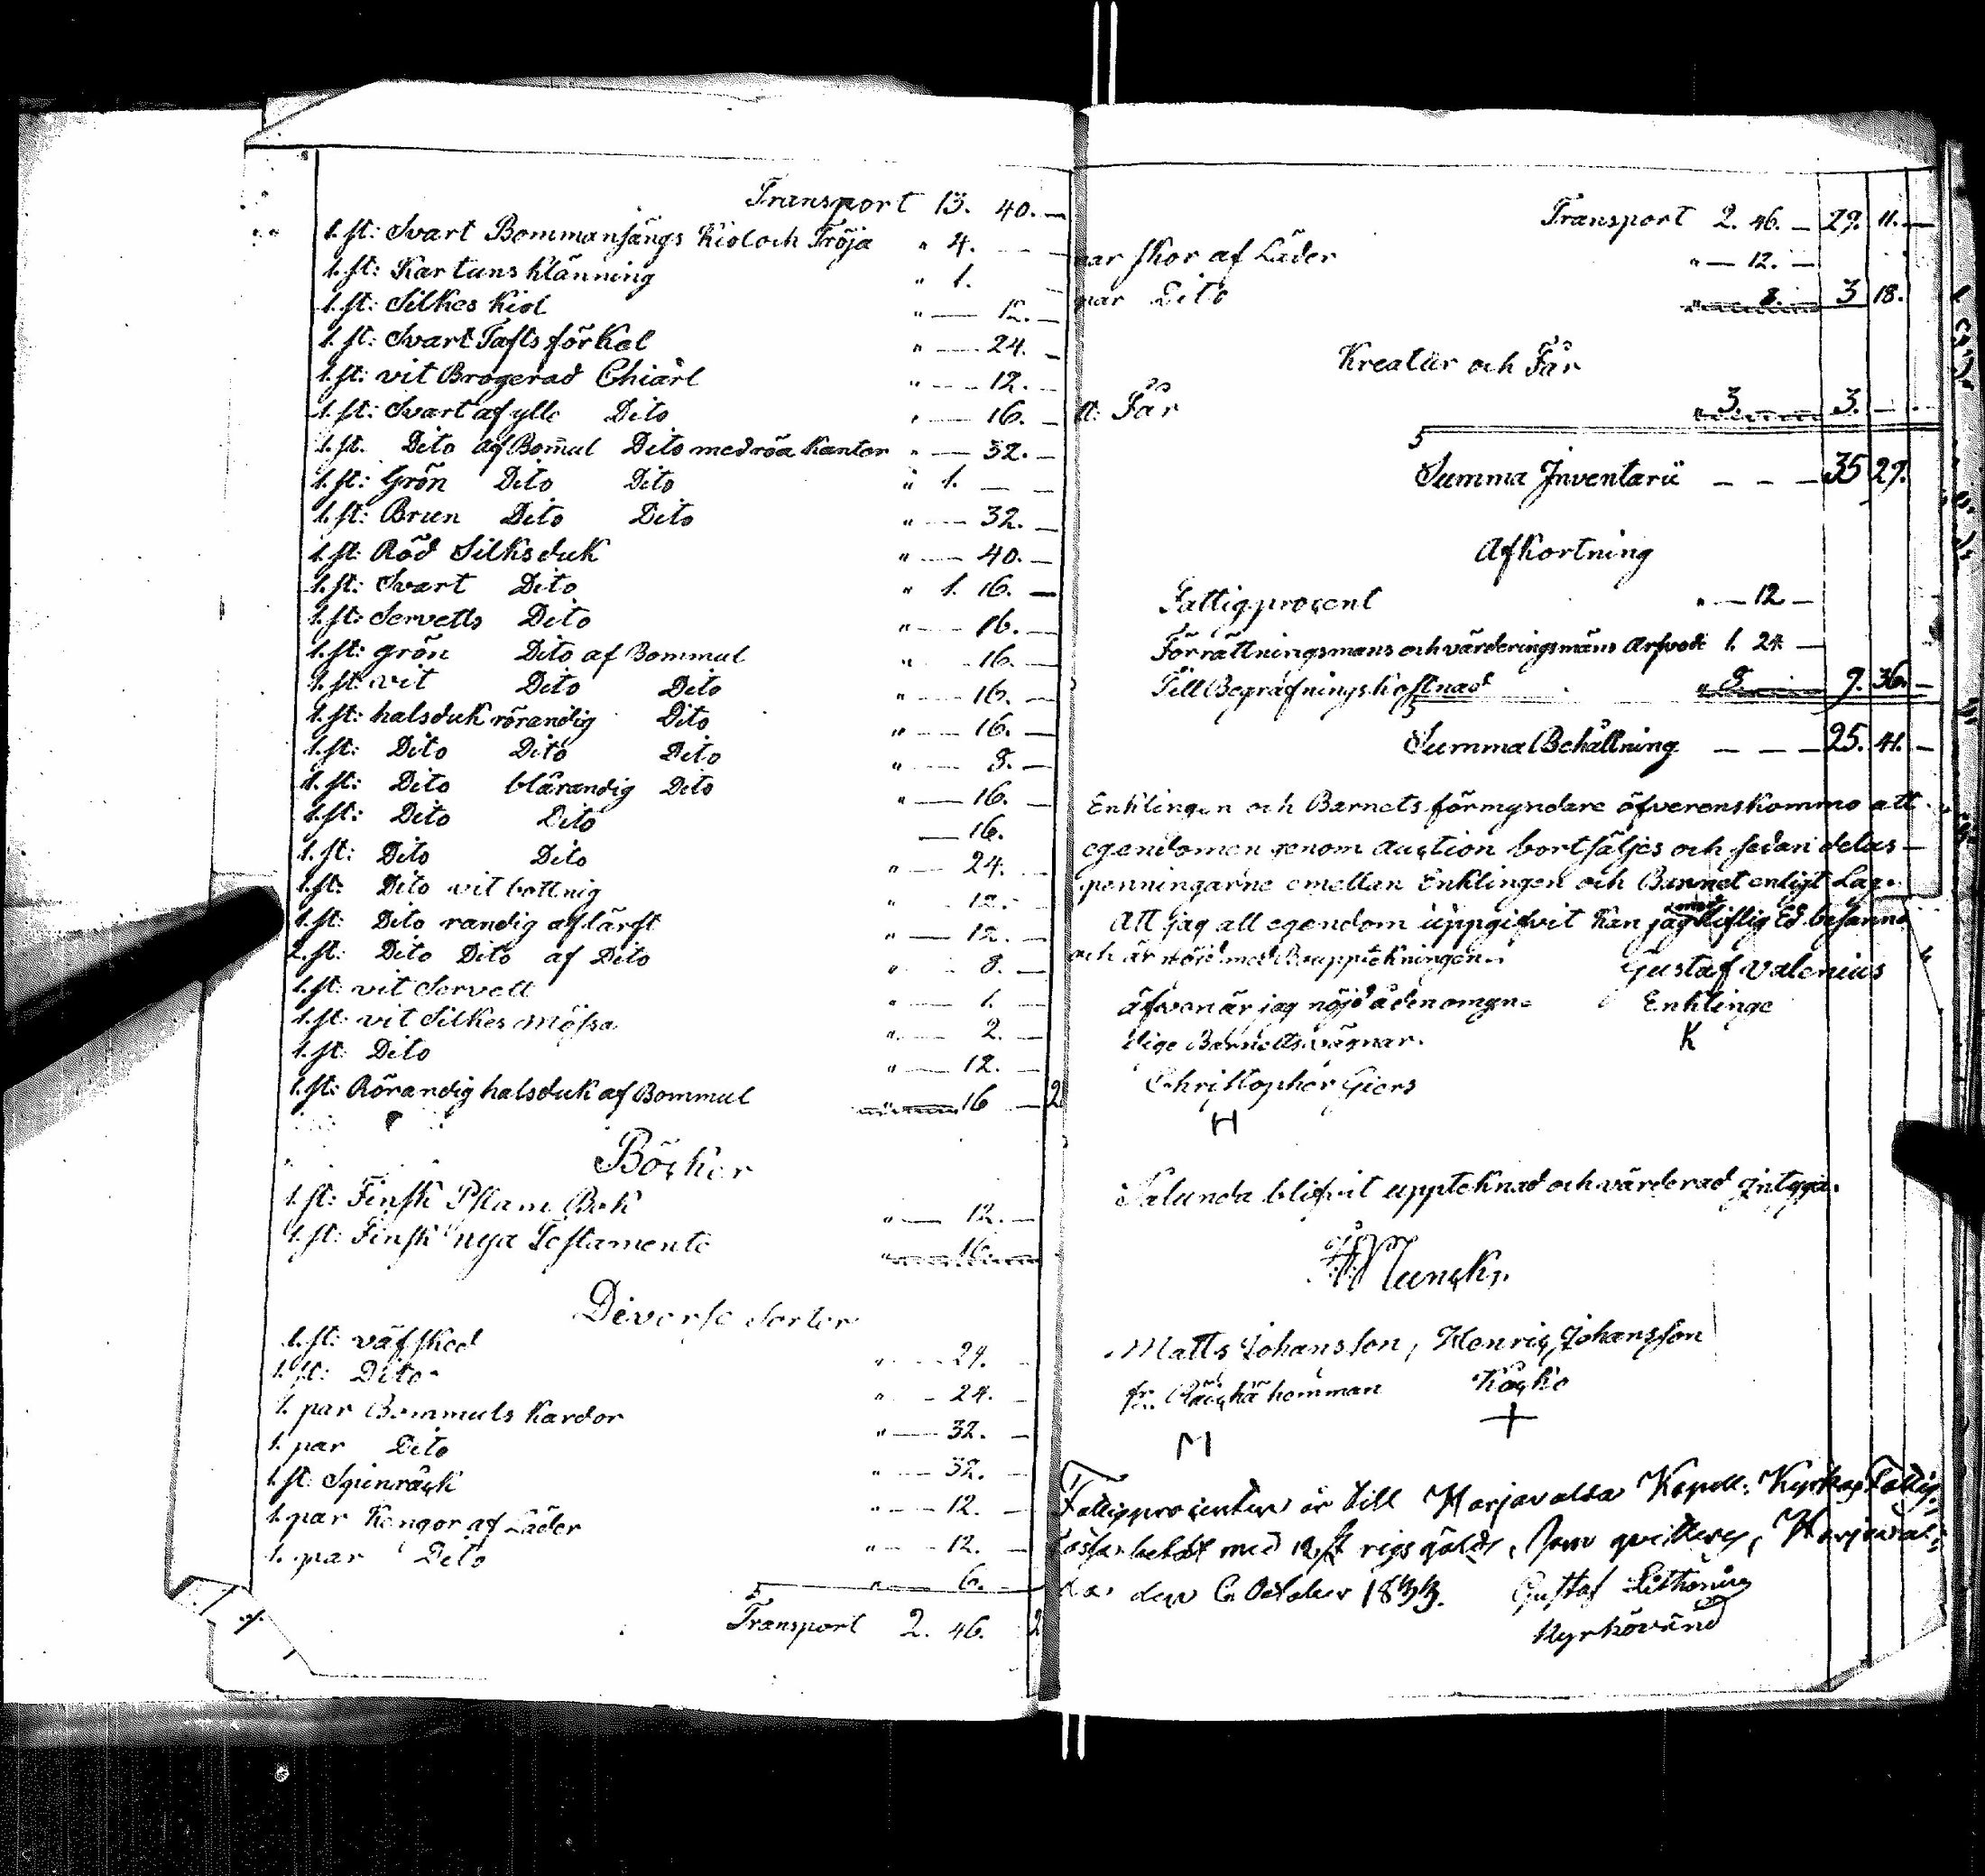 Transport 13. 40. —
1. st: Svart Bommansängs Kiol och Tröja " 4. — —
1. st: Kartuns Klänning " 1. —
1. st: Silkes Kiol " — 12. —
1. st: Svart Tafts förkol " — 24. —
1. st: vit Brogerad Chiärl " — 12. —
1. st: Svart af ylle Dito " — 16. —
1. st. Dito af Bom̅ul Dito med röa Kantor " — 32. —
1. st: Grön Dito Dito " 1. — —
1. st: Brun Dito Dito " — 32. —
1. st: Röd Silksduk " — 40. —
1. st: Svart Dito " 1. 16. —
1. st: Servetts Dito " — 16. —
1. st: grön Dito af Bommul " — 16. —
1. st: vit Dito Dito " — 16. —
1. st: halsduk rörandig Dito " — 16. —
1. st: Dito Dito Dito " — 8. —
1. st: Dito blårandig Dito " — 16. —
1. st: Dito Dito — 16.
1. st: Dito Dito " — 24. —
1. st: Dito vit bottnig " 12. —
1. st: Dito randig af lärft " — 12. —
2. st: Dito Dito af Dito " — 8. —
1. st: vit Servett " — 1. —
1. st: vit Silkes mössa " — 2. —
1. st: Dito " — 12. —
1. st: Rörandig halsduk af Bommul " — 16 — 2
Böcker
1. st: Finsk Psalm Bok " — 12. —
1. st: Finsk nya Testamente " — 16. —
Diverse Sorter
1. st: väfsked " — 24. —
1. st: Dito " — 24. —
1. par Bommuls Kardor " — 32. —
1. par Dito " — 32. —
1. st: Spinräck " — 12. —
1. par Kängor af Läder " — 12. —
1. par Dito " — 6. —
Transport 2. 46. 2
Transport 2. 46. — 29. 11. —
par skor af Läder " — 12. —
par Dito " — 8. — 3 18.
Kreatur och Får
st: Får " 3. — 3. —
Summa Inventarii — — — 35 29.
Afkortning
Fattigprocent " — 12 —
Förrättningsmans och värderingsmäns Arfvode 1. 24 —
Till Begrafningskostnad " 8. — 9. 36. —
Summa Behållning — — — 25. 41. —
Enklingen och Barnets förmyndare öfverenskommo att
egendomen genom auction bortsäljes och sedan delas —
penningarne emellan Enklingen och Barnet enligt Lag.
Att jag all egendom uppgifvit kan jag med liflig Ed besanna
och är nöjd med Bouppteckningen. Gustaf Valenius
äfven är jag nöjd å den omyn= Enklinge
dige Barnetts vägnar. K
Christopher Giers
H
Salunda blifvit upptecknad och värderad intyga.
Munck.
Matts Johansson, Henric Johansson
Kåcko
+
M
Fattigprocenten är till Harjavalda Kapell: Kyrkas Fattig=
cassa betalt med 12 st rigsgälds, som qvitteras, Harjaval=
da den 6 October 1833. Gustaf
Kyrkovärd